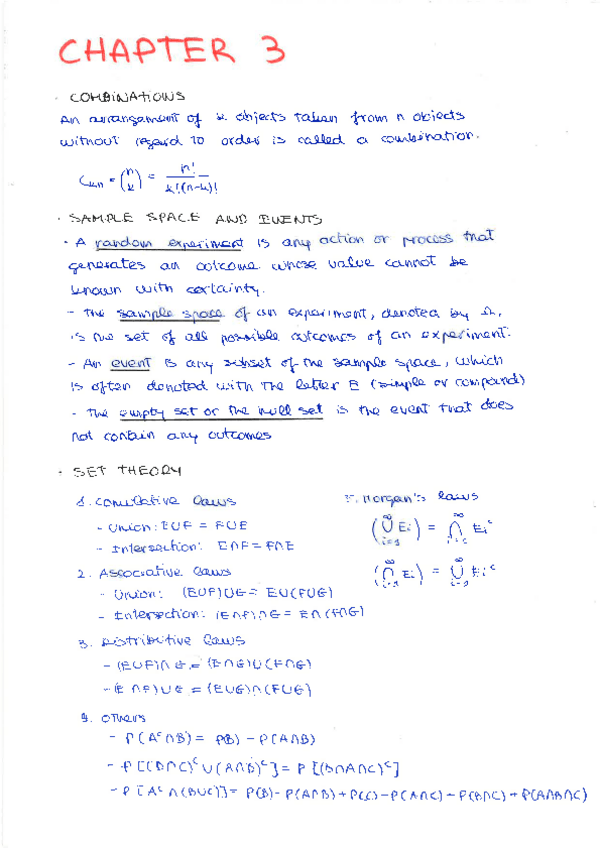 CHAPTER 3
· COMBINATIONS
An arrangement of k objects taken from n objects
without regard to order is called a combination.
Ck,n = (n k) = n! / k!(n-k)!
· SAMPLE SPACE AND EVENTS
- A random experiment is any action or process that
generates an outcome whose value cannot be
known with certainty.
- The sample space of an experiment, denoted by Ω,
is the set of all possible outcomes of an experiment.
- An event is any subset of the sample space, which
is often denoted with the letter E (simple or compound)
- The empty set or the null set is the event that does
not contain any outcomes
· SET THEORY
1. Comutative laws
- Union: E∪F = F∪E
- Intersection: E∩F = F∩E
2. Associative laws
- Union: (E∪F)∪G = E∪(F∪G)
- Intersection: (E∩F)∩G = E∩(F∩G)
3. Distributive laws
- (E∪F)∩G = (E∩G)∪(F∩G)
- (E∩F)∪G = (E∪G)∩(F∪G)
Morgan's laws
(∞∪i=1 Ei) = ∞∩i=1 Ei^c
(∞∩i=1 Ei) = ∞∪i=1 Ei^c
9. Others
- P(A^c∩B) = P(B) - P(A∩B)
- P[(B∩C)^c ∪ (A∩B)^c] = P[(B∩A∩C)^c]
- P[A^c ∩ (B∪C)] = P(B) - P(A∩B) + P(C) - P(A∩C) - P(B∩C) + P(A∩B∩C)